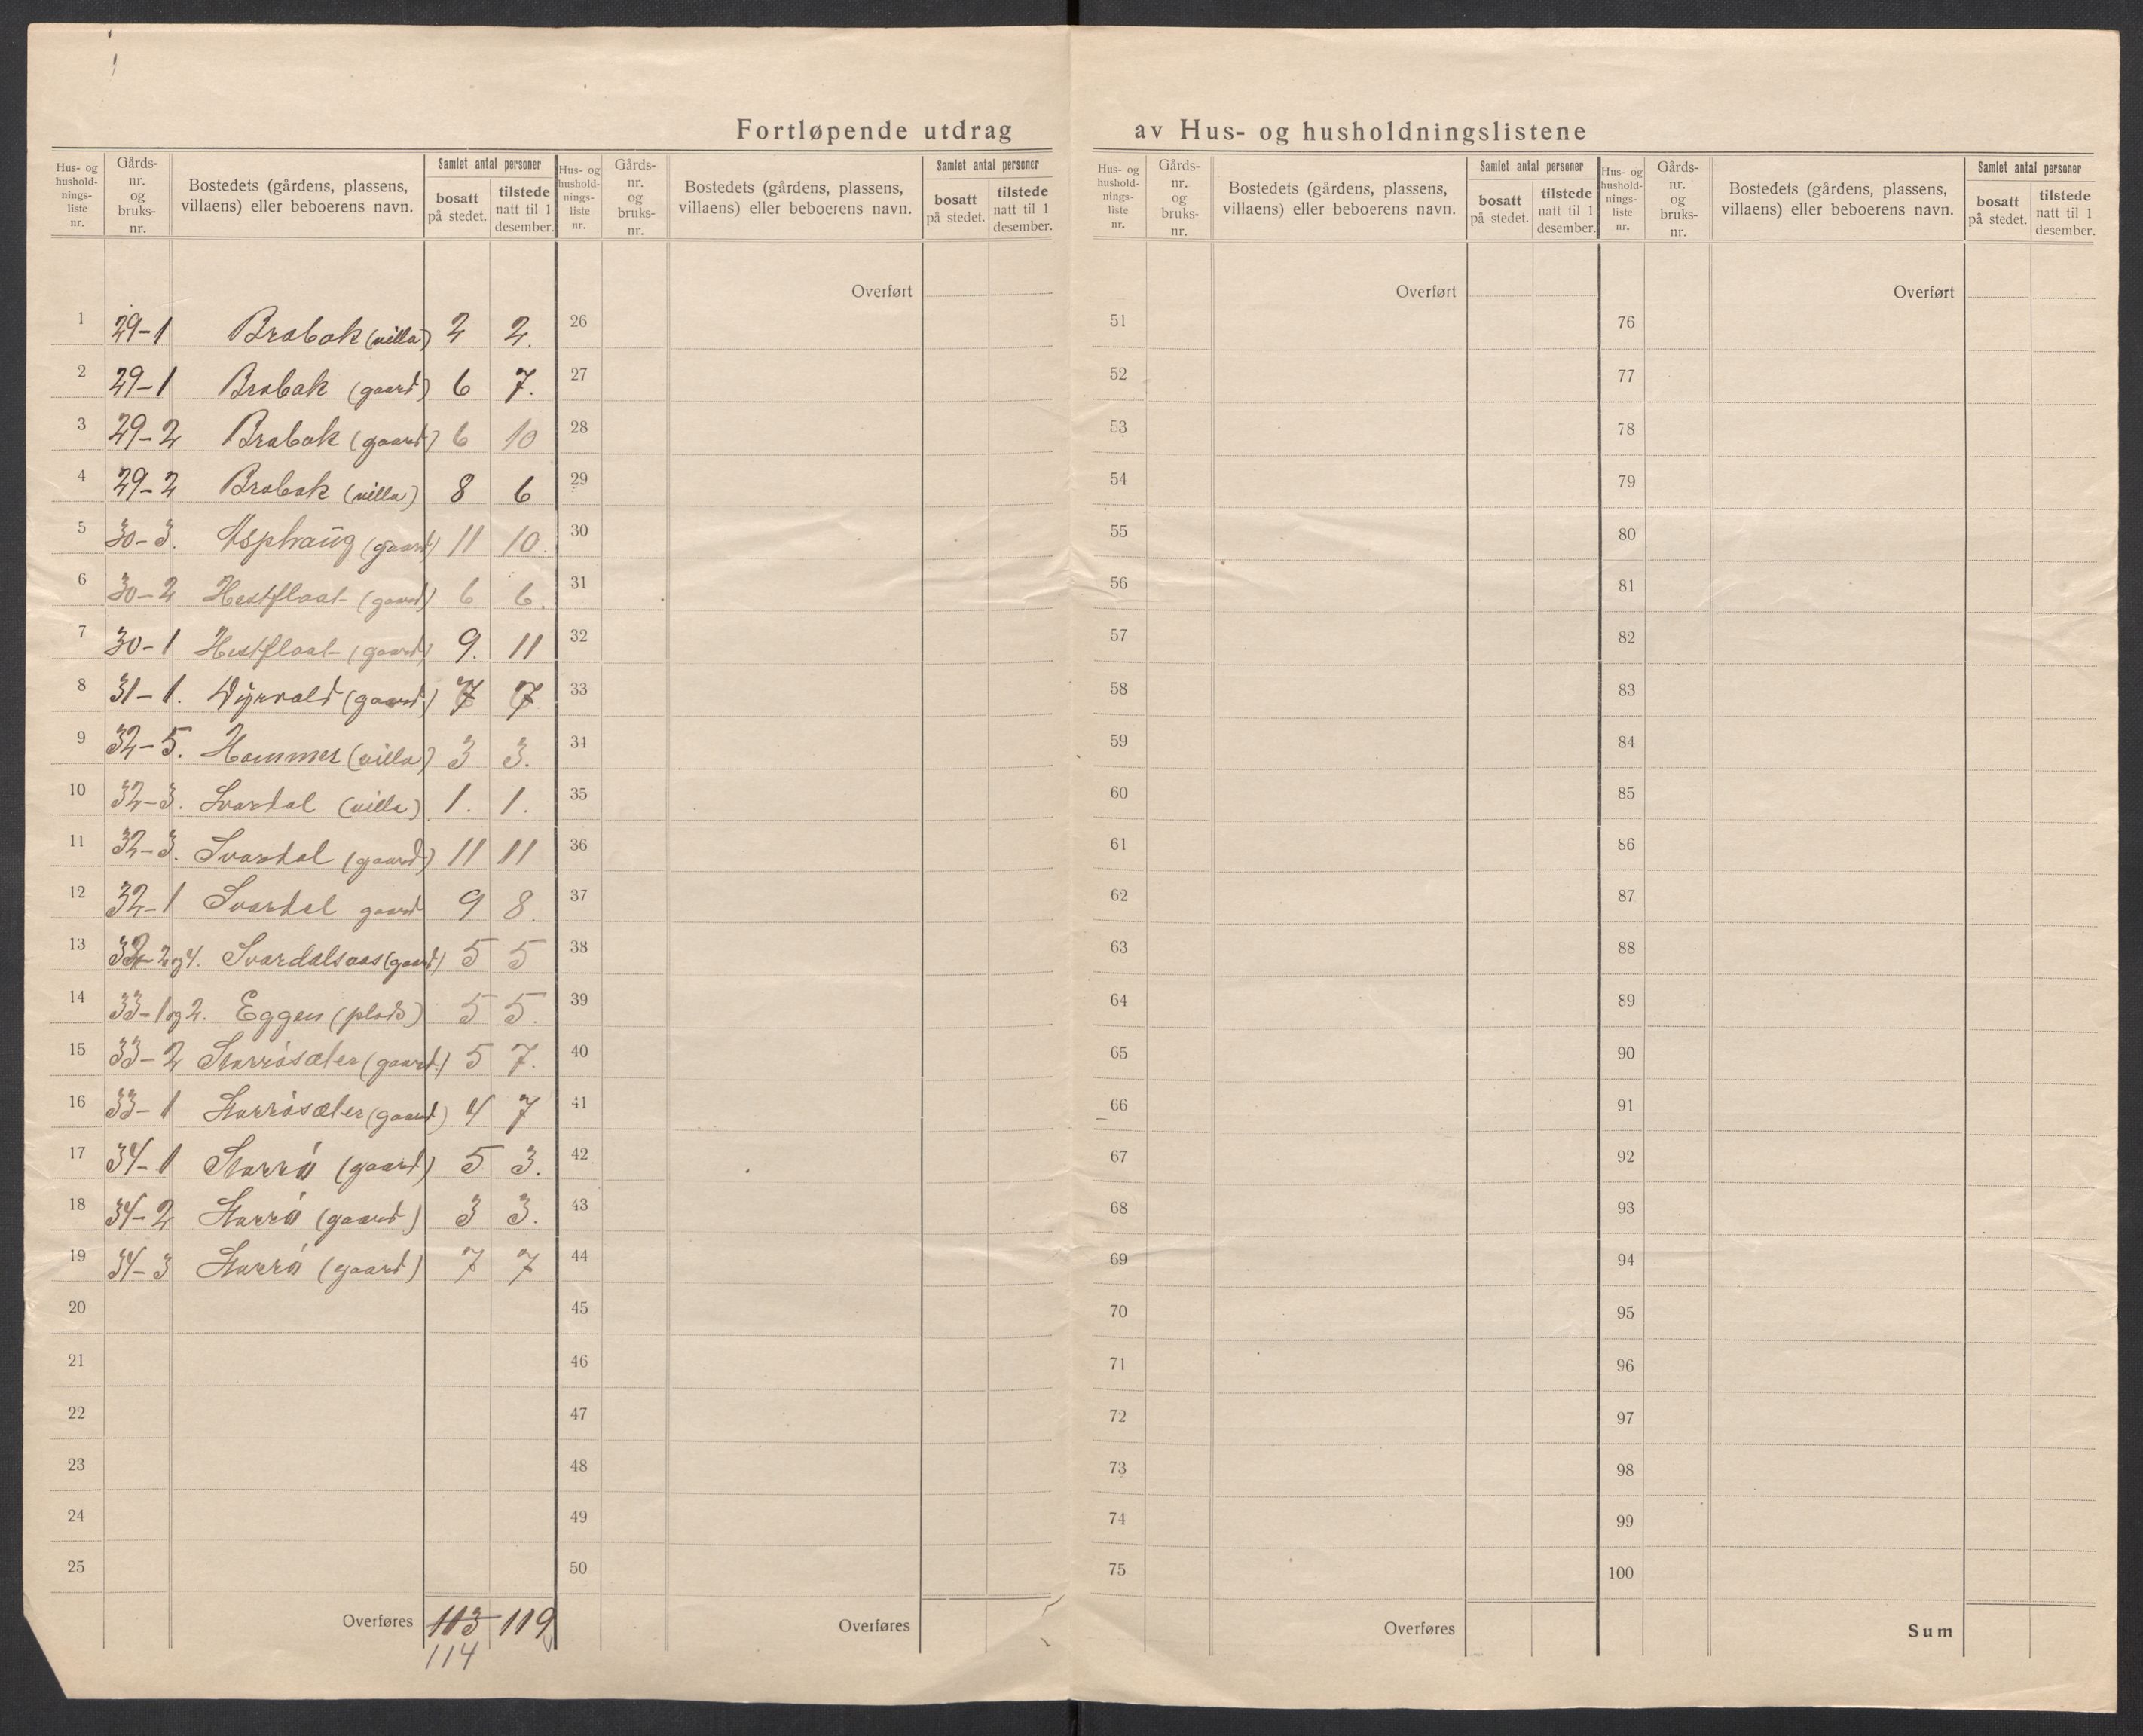 Fortløpende utdrag av Hus- og husholdningslistene
Hus- og hushold-nings-liste nr. Gårds-nr. og bruks-nr. Bostedets (gårdens, plassens, villaens) eller beboerens navn. Samlet antal personer bosatt på stedet. tilstede natt til 1 desember.
Hus- og hushold-nings-liste nr. Gårds-nr. og bruks-nr. Bostedets (gårdens, plassens, villaens) eller beboerens navn. Samlet antal personer bosatt på stedet. tilstede natt til 1 desember.
Hus- og hushold-nings-liste nr. Gårds-nr. og bruks-nr. Bostedets (gårdens, plassens, villaens) eller beboerens navn. Samlet antal personer bosatt på stedet. tilstede natt til 1 desember.
Hus- og hushold-nings-liste nr. Gårds-nr. og bruks-nr. Bostedets (gårdens, plassens, villaens) eller beboerens navn. Samlet antal personer bosatt på stedet. tilstede natt til 1 desember.
1 29-1 Brabak (villa) 2 2.
2 29-1 Brabak (gaard) 6 7.
3 29-2 Brabak (gaard) 6 10
4 29-2 Brabak (villa) 8 6
5 30-3. Asphaug (gaard) 11 10.
6 30-2 Hestflaat (gaard) 6 6.
7 30-1 Hestflaat (gaard) 9. 11
8 31-1. Dyrvald (gaard) 7 7
9 32-5. Hammer (villa) 3 3.
10 32-3. Svardal (villa) 1. 1.
11 32-3. Svardal (gaard) 11 11
12 32-1 Svardal gaard 9 8.
13 32-2 og 4. Svardalsaas (gaard) 5 5
14 33-1 og 2. Eggen (plads) 5 5.
15 33-2 Starrøsæter (gaard) 5 7.
16 33-1 Starrøsæter (gaard) 4 7
17 34-1 Starrø (gaard) 5 3.
18 34-2 Starrø (gaard) 3 3.
19 34-3 Starrø (gaard) 7 7
20
21
22
23
24
25
Overføres 113 119
114
Overført
26
27
28
29
30
31
32
33
34
35
36
37
38
39
40
41
42
43
44
45
46
47
48
49
50
Overføres
Overført
51
52
53
54
55
56
57
58
59
60
61
62
63
64
65
66
67
68
69
70
71
72
73
74
75
Overføres
Overført
76
77
78
79
80
81
82
83
84
85
86
87
88
89
90
91
92
93
94
95
96
97
98
99
100
Sum